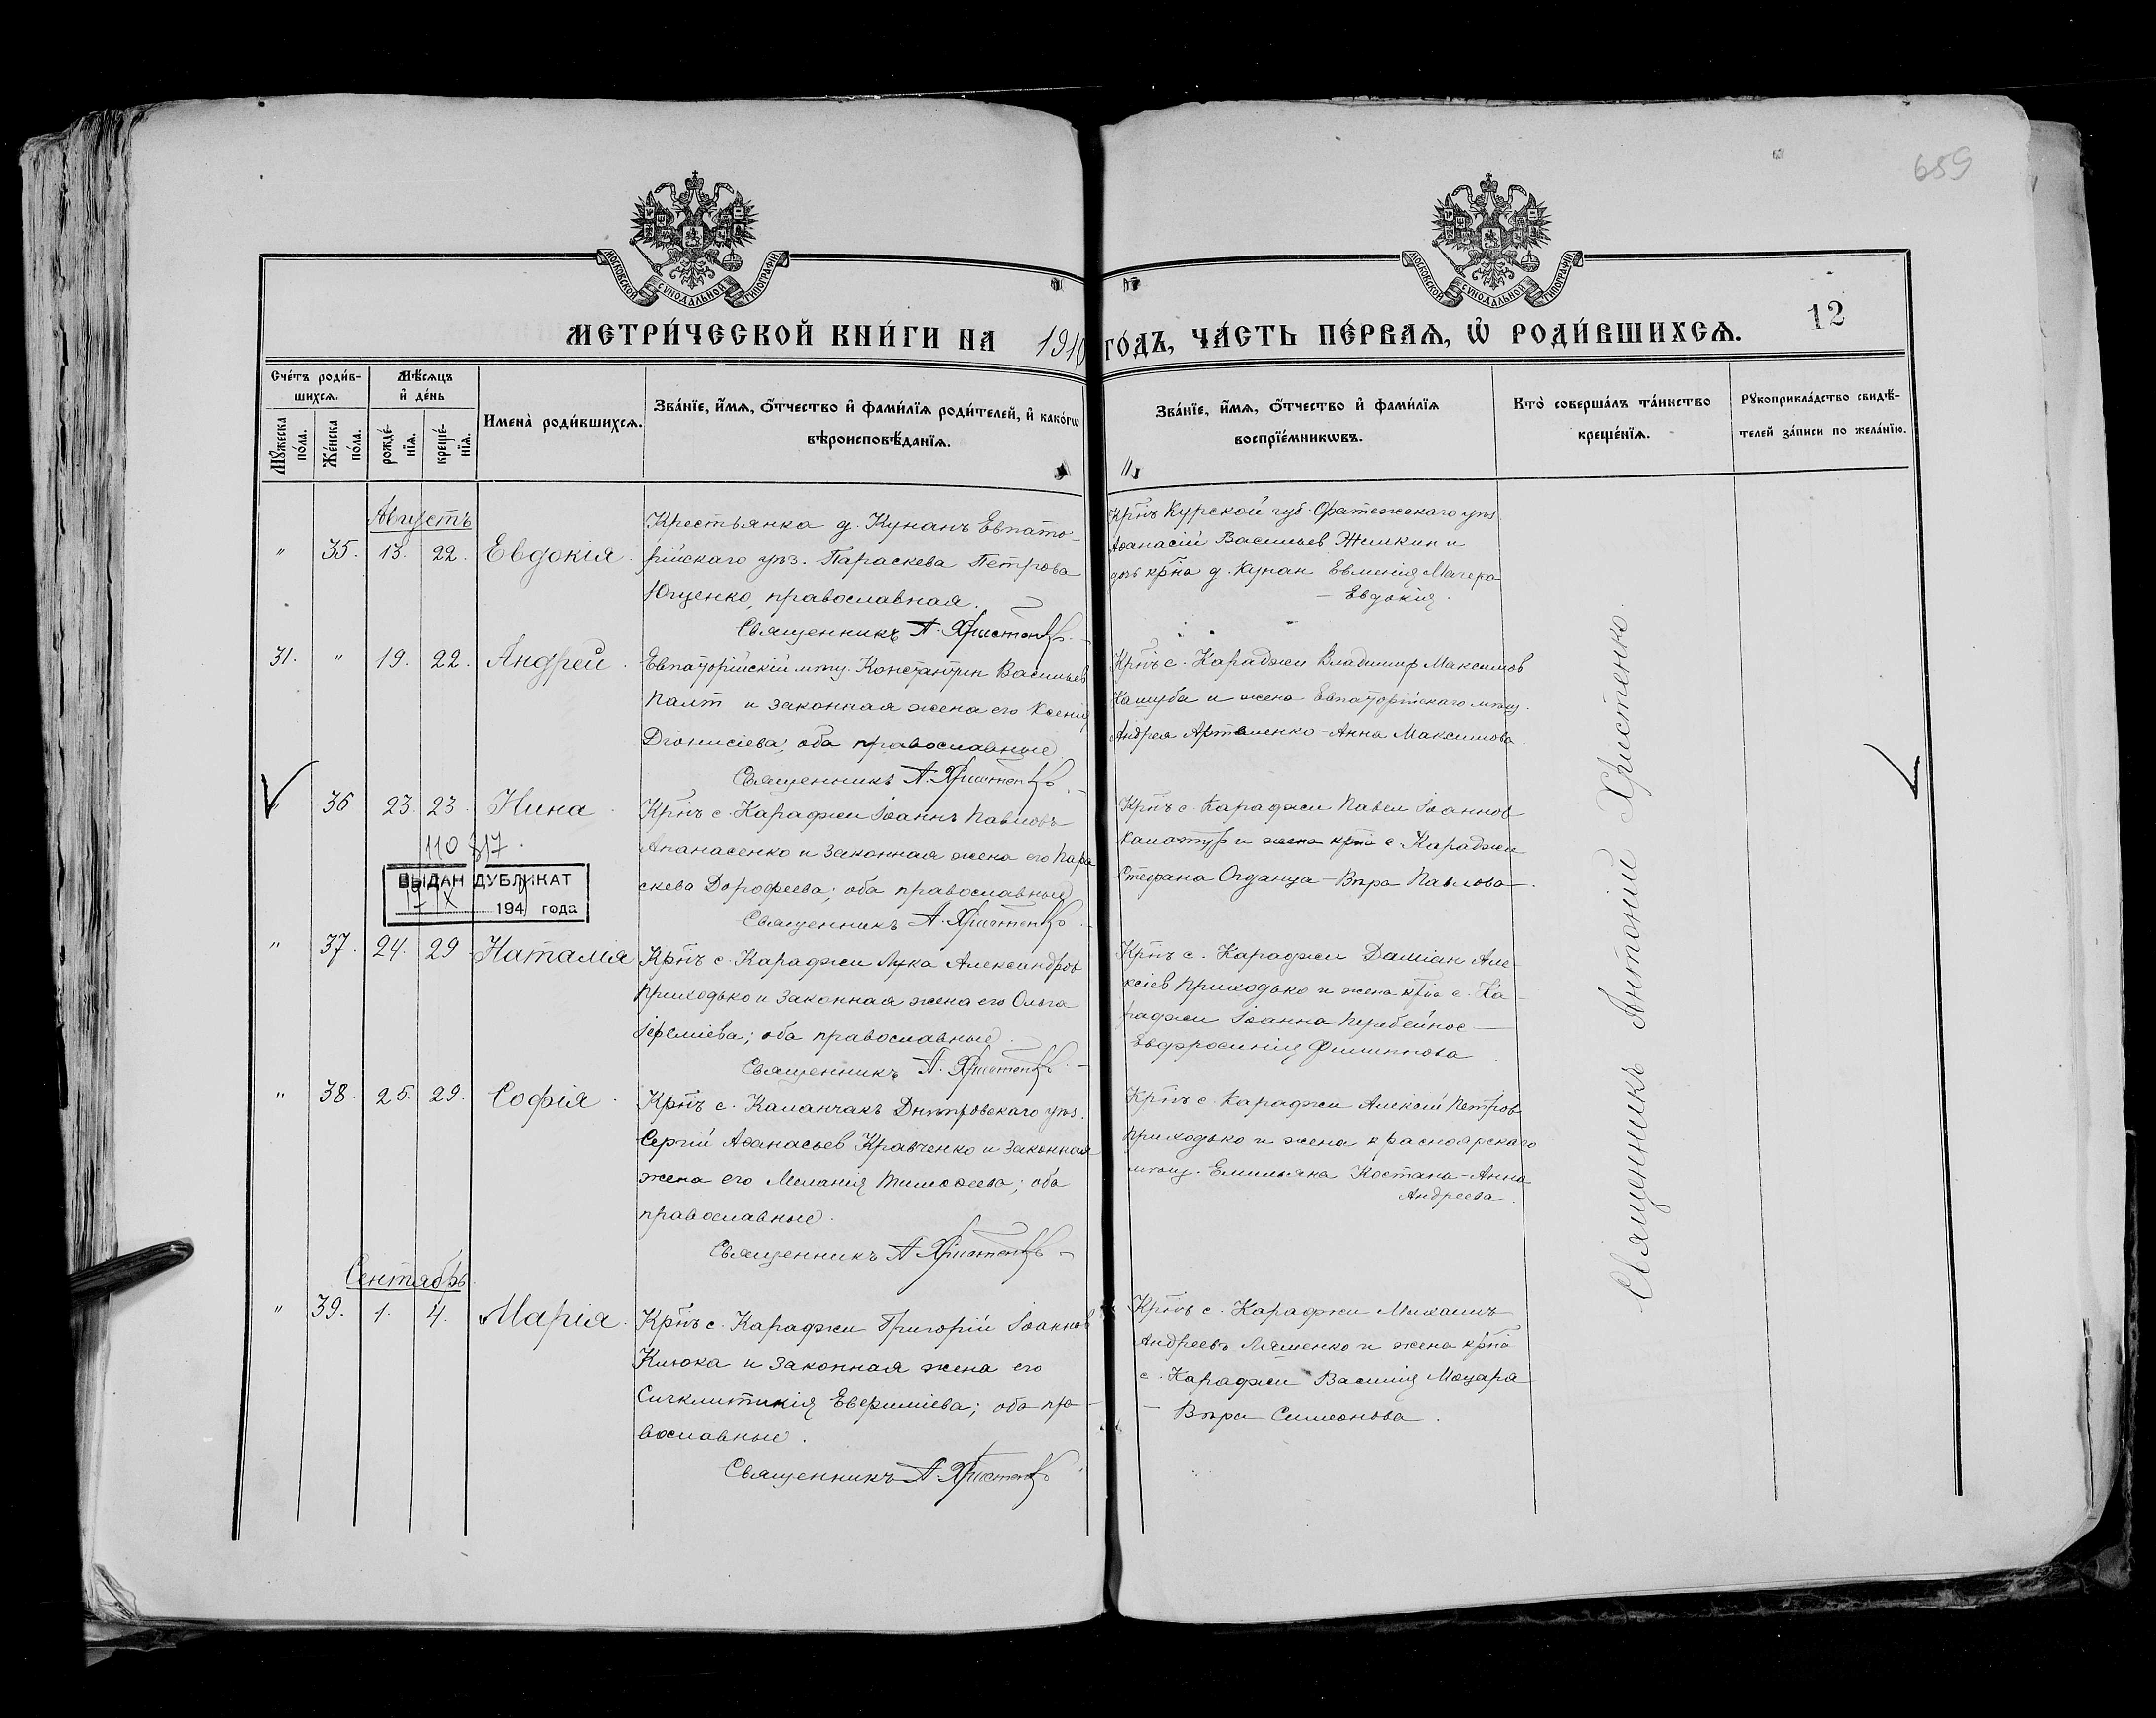 659
МОСКОВСКОЙ СѴНОДАЛЬНОЙ ТИПОГРАФІИ
МОСКОВСКОЙ СѴНОДАЛЬНОЙ ТИПОГРАФІИ
МЕТРИ́ЧЕСКОЙ КНИ́ГИ НА 1910 ГО́ДЪ, ЧА́СТЬ ПЕ́РВАѦ, Ѡ҆ РОДИ́ВШИХСѦ.
12
Сче́тъ роди́в-
шихсѧ.
Мꙋжеска по́ла.
Же́нска по́ла.
Мѣ́сѧцъ
и҆ де́нь
рожде́-
нїѧ.
креще́-
нїѧ.
Имена̀ роди́вшихсѧ.
Зва́нїе, и҆́мѧ, ѻ҆́тчество и҆ фами́лїѧ роди́телей, и҆ како́гѡ
вѣроисповѣ́данїѧ.
Зва́нїе, и҆́мѧ, ѻ҆́тчество и҆ фами́лїѧ
воспрїе́мникѡвъ.
Кто̀ соверша́лъ та́инство
креще́нїѧ.
Рꙋкоприкла́дство свидѣ́-
телей за́писи по жела́нїю.
Августъ
" 35. 13. 22. Евдокія.
Крестьянка д. Кунанъ Евпато-
рійскаго уѣз. Параскева Петрова
Ющенко, православная.
Священникъ А. Христенко
Крн͞ъ Курской губ. Фатежскаго уѣз.
Аѳанасій Васильев Жилкин и
дочь кр͞на д. Кунан Евменія Мачера
– Евдокія.
31. " 19. 22. Андрей.
Евпаторійскій мѣщ. Константин Васильев
Палт и законная жена его Ксенія
Діонисіева, оба православные.
Священникъ А. Христенко
Крн͞ъ с. Караджи Владимир Максимов
Кашуба и жена Евпаторійскаго мѣщ.
Андрея Артеменко – Анна Максимова.
" 36 23. 23. Нина.
Крн͞ъ с. Караджи Іоаннъ Павловъ
Апанасенко и законная жена его Пара
скева Дороѳеева; оба православные
Священникъ А. Христенко
Крн͞ъ с. Караджи Павел Іоаннов
и жена кр͞на с. Караджи
Стефана Огданца – Вѣра Павлова.
110 817.
ВЫДАН ДУБЛИКАТ
194 года
" 37. 24. 29 Наталія
Крн͞ъ с. Караджи Лука Александров
Приходько и законная жена его Ольга
Іереміева; оба православные.
Священникъ А. Христенко
Крн͞ъ с. Караджи Даміан Але-
ксіев Приходько и жена кр͞на с. Ка-
раджи Іоанна Перебейнос –
Евфросинія Филиппова.
" 38. 25. 29. Софія.
Крн͞ъ с. Каланчакъ Днѣпровскаго уѣз.
Сергій Аѳанасьев Кравченко и законная
жена его Меланія Тимоѳеева; оба
православные.
Священникъ А. Христенко
Крн͞ъ с. Караджи Алексій Петров
Приходько и жена красноярскаго
мѣщ. Емильяна Костана – Анна
Андреева.
Сентябрь.
" 39. 1. 4. Марія.
Крн͞ъ с. Караджи Григорій Іоаннов
Клюка и законная жена его
Сигклитикія Евфиміева; оба пра-
вославные.
Священникъ А. Христенко
Крн͞ъ с. Караджи Михаилъ
Андреевъ Ляшенко и жена кр͞на
с. Караджи Василія Моцара
– Вѣра Симеонова.
Священникъ Антоній Христенко.